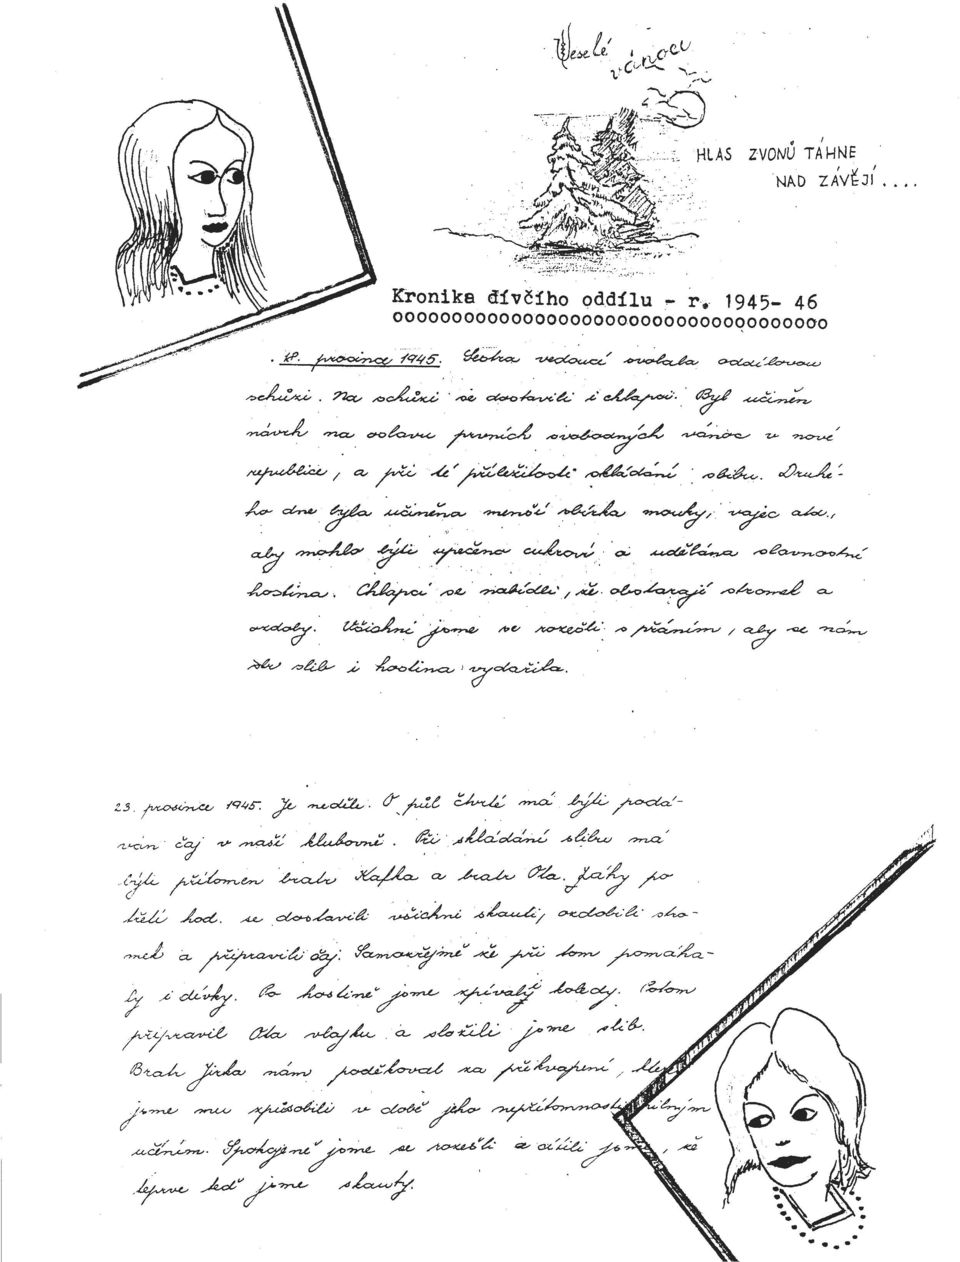 Veselé
vánoce
HLAS ZVONŮ TÁHNE
NAD ZÁVĚJÍ....
Kronika dívčího oddílu - r. 1945- 46
ooooooooooooooooooooooooooooooooooooo
18. prosince 1945. Sestra vedoucí svolala oddílovou
schůzi. Na schůzi se dostavili i chlapci. Byl učiněn
návrh na oslavu prvních svobodných vánoc v nové
republice, a při té příležitosti skládání slibu. Druhé-
ho dne byla učiněna menší sbírka mouky, vajec atd.,
aby mohlo býti upečeno cukroví a udělána slavnostní
hostina. Chlapci se nabídli, že obstarají stromek a
ozdoby. Všichni jsme se rozešli s přáním, aby se nám
slib i hostina vydařila.
23. prosince 1945. Je neděle. O půl čtvrté má býti podá-
ván čaj v naší klubovně. Při skládání slibu má
býti přítomen bratr Kafka a bratr Ota. Záhy po
třetí hod. se dostavili všichni skauti, ozdobili stro-
mek a připravili čaj. Samozřejmě že při tom pomáha-
ly i dívky. Po hostině jsme zpívaly koledy. Potom
připravil Ota vlajku a složili jsme slib.
Bratr Jirka nám poděkoval za překvapení,
jsme mu způsobili v době jeho nepřítomnosti pilným
učením. Spokojeně jsme se rozešli a cítili jsme, že
teprve teď jsme skauty.